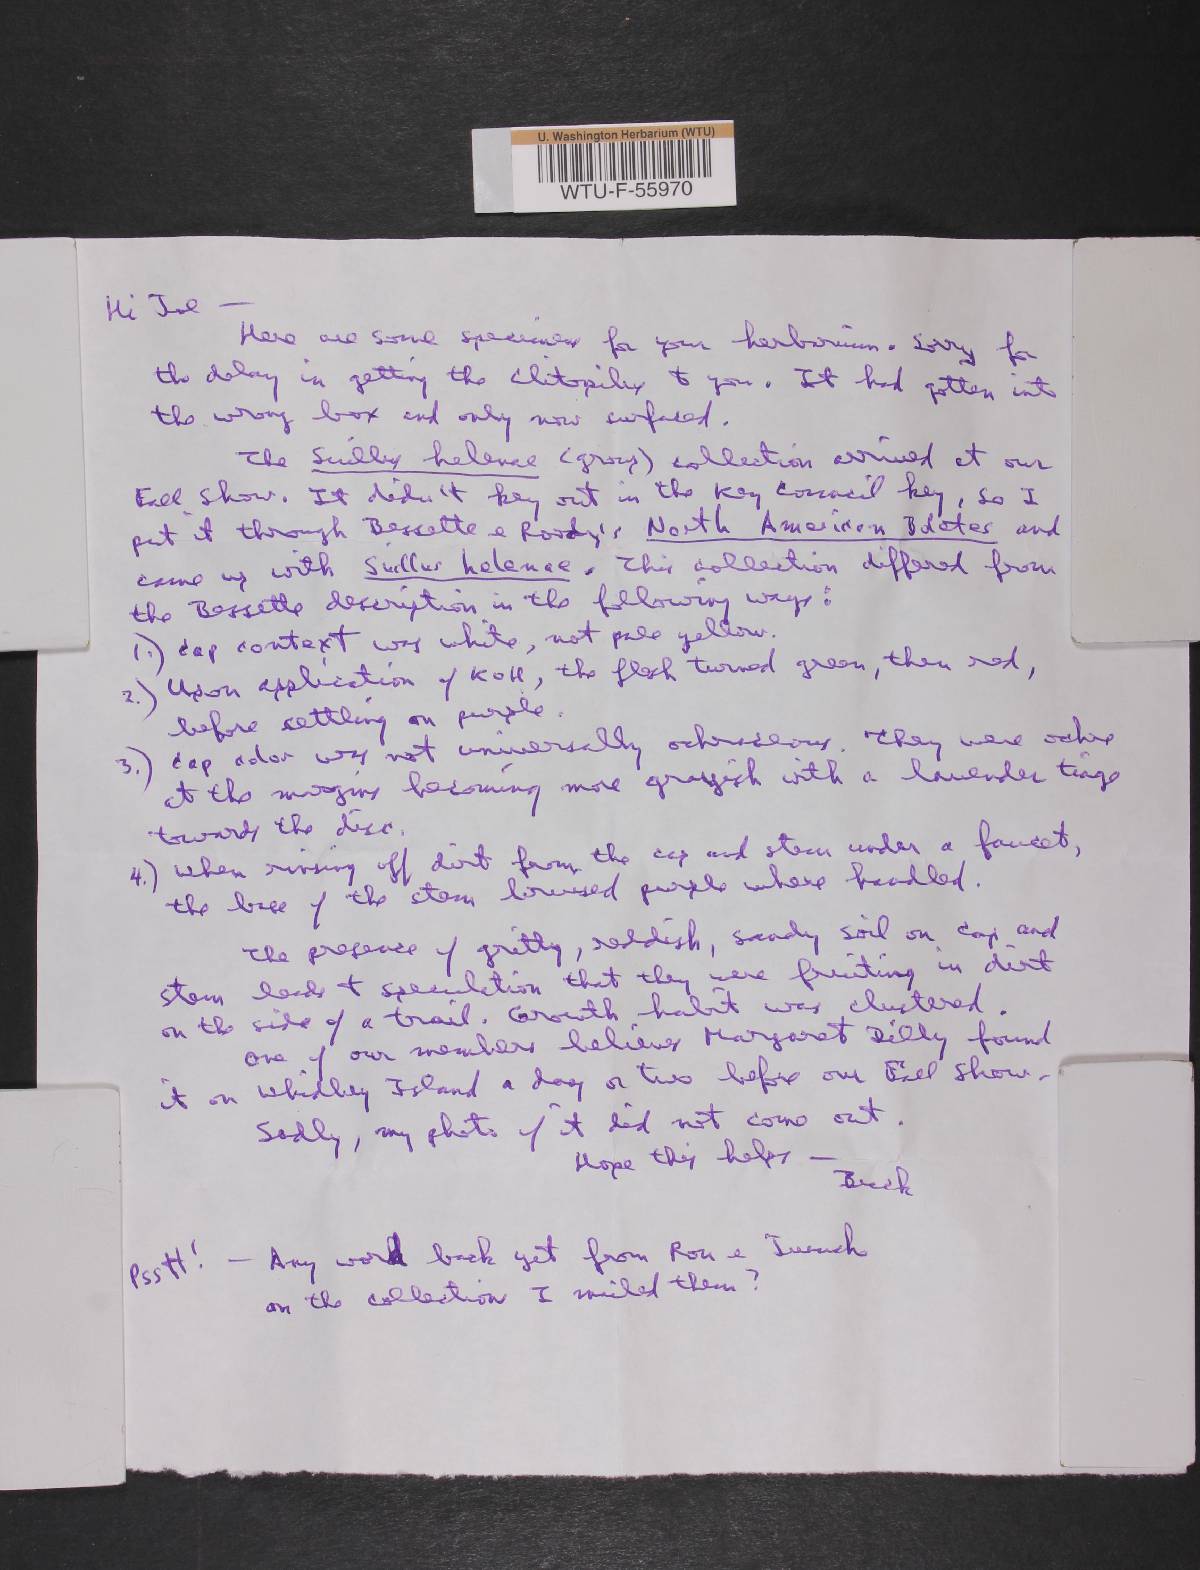 U. Washington Herbarium (WTU)
WTU-F-55970
Hi Joe —
Here are some specimens for your herbarium. Sorry for
the delay in getting the Clitopilus to you. It had gotten into
the wrong box and only now surfaced.
The Suillus helenae (group) collection arrived at our
Fall Show. It didn't key out in the Key Council key, so I
put it through Bessette & Roody's North American Boletes and
came up with Suillus helenae. This collection differed from
the Bessette description in the following ways:
1.) Cap context was white, not pale yellow.
2.) Upon application of KOH, the flesh turned green, then red,
before settling on purple.
3.) Cap color was not universally ochraceous. They were ochre
at the margins becoming more grayish with a lavender tinge
towards the disc.
4.) When rinsing off dirt from the cap and stem under a faucet,
the base of the stem bruised purple where handled.
The presence of gritty, reddish, sandy soil on cap and
stem leads to speculation that they were fruiting in dirt
on the side of a trail. Growth habit was clustered.
One of our members believes Margaret Dilly found
it on Whidbey Island a day or two before our Fall Show.
Sadly, my photo of it did not come out.
Hope this helps —
Buck
Psstt! — Any word back yet from Ron &
on the collection I mailed them?